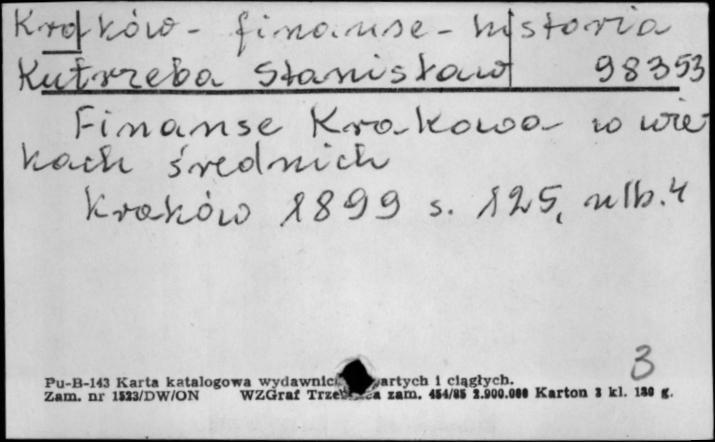 Kraków - finanse - historia
Kutrzeba Stanisław 98353
Finanse Krakowa w wie
kach średnich
Kraków 1899 s. 125, nlb. 4
3
Pu-B-143 Karta katalogowa wydawnic artych i ciągłych.
Zam. nr 1523/DW/ON WZGraf zam. 454/85 2.900.000 Karton 3 kl. 180 g.